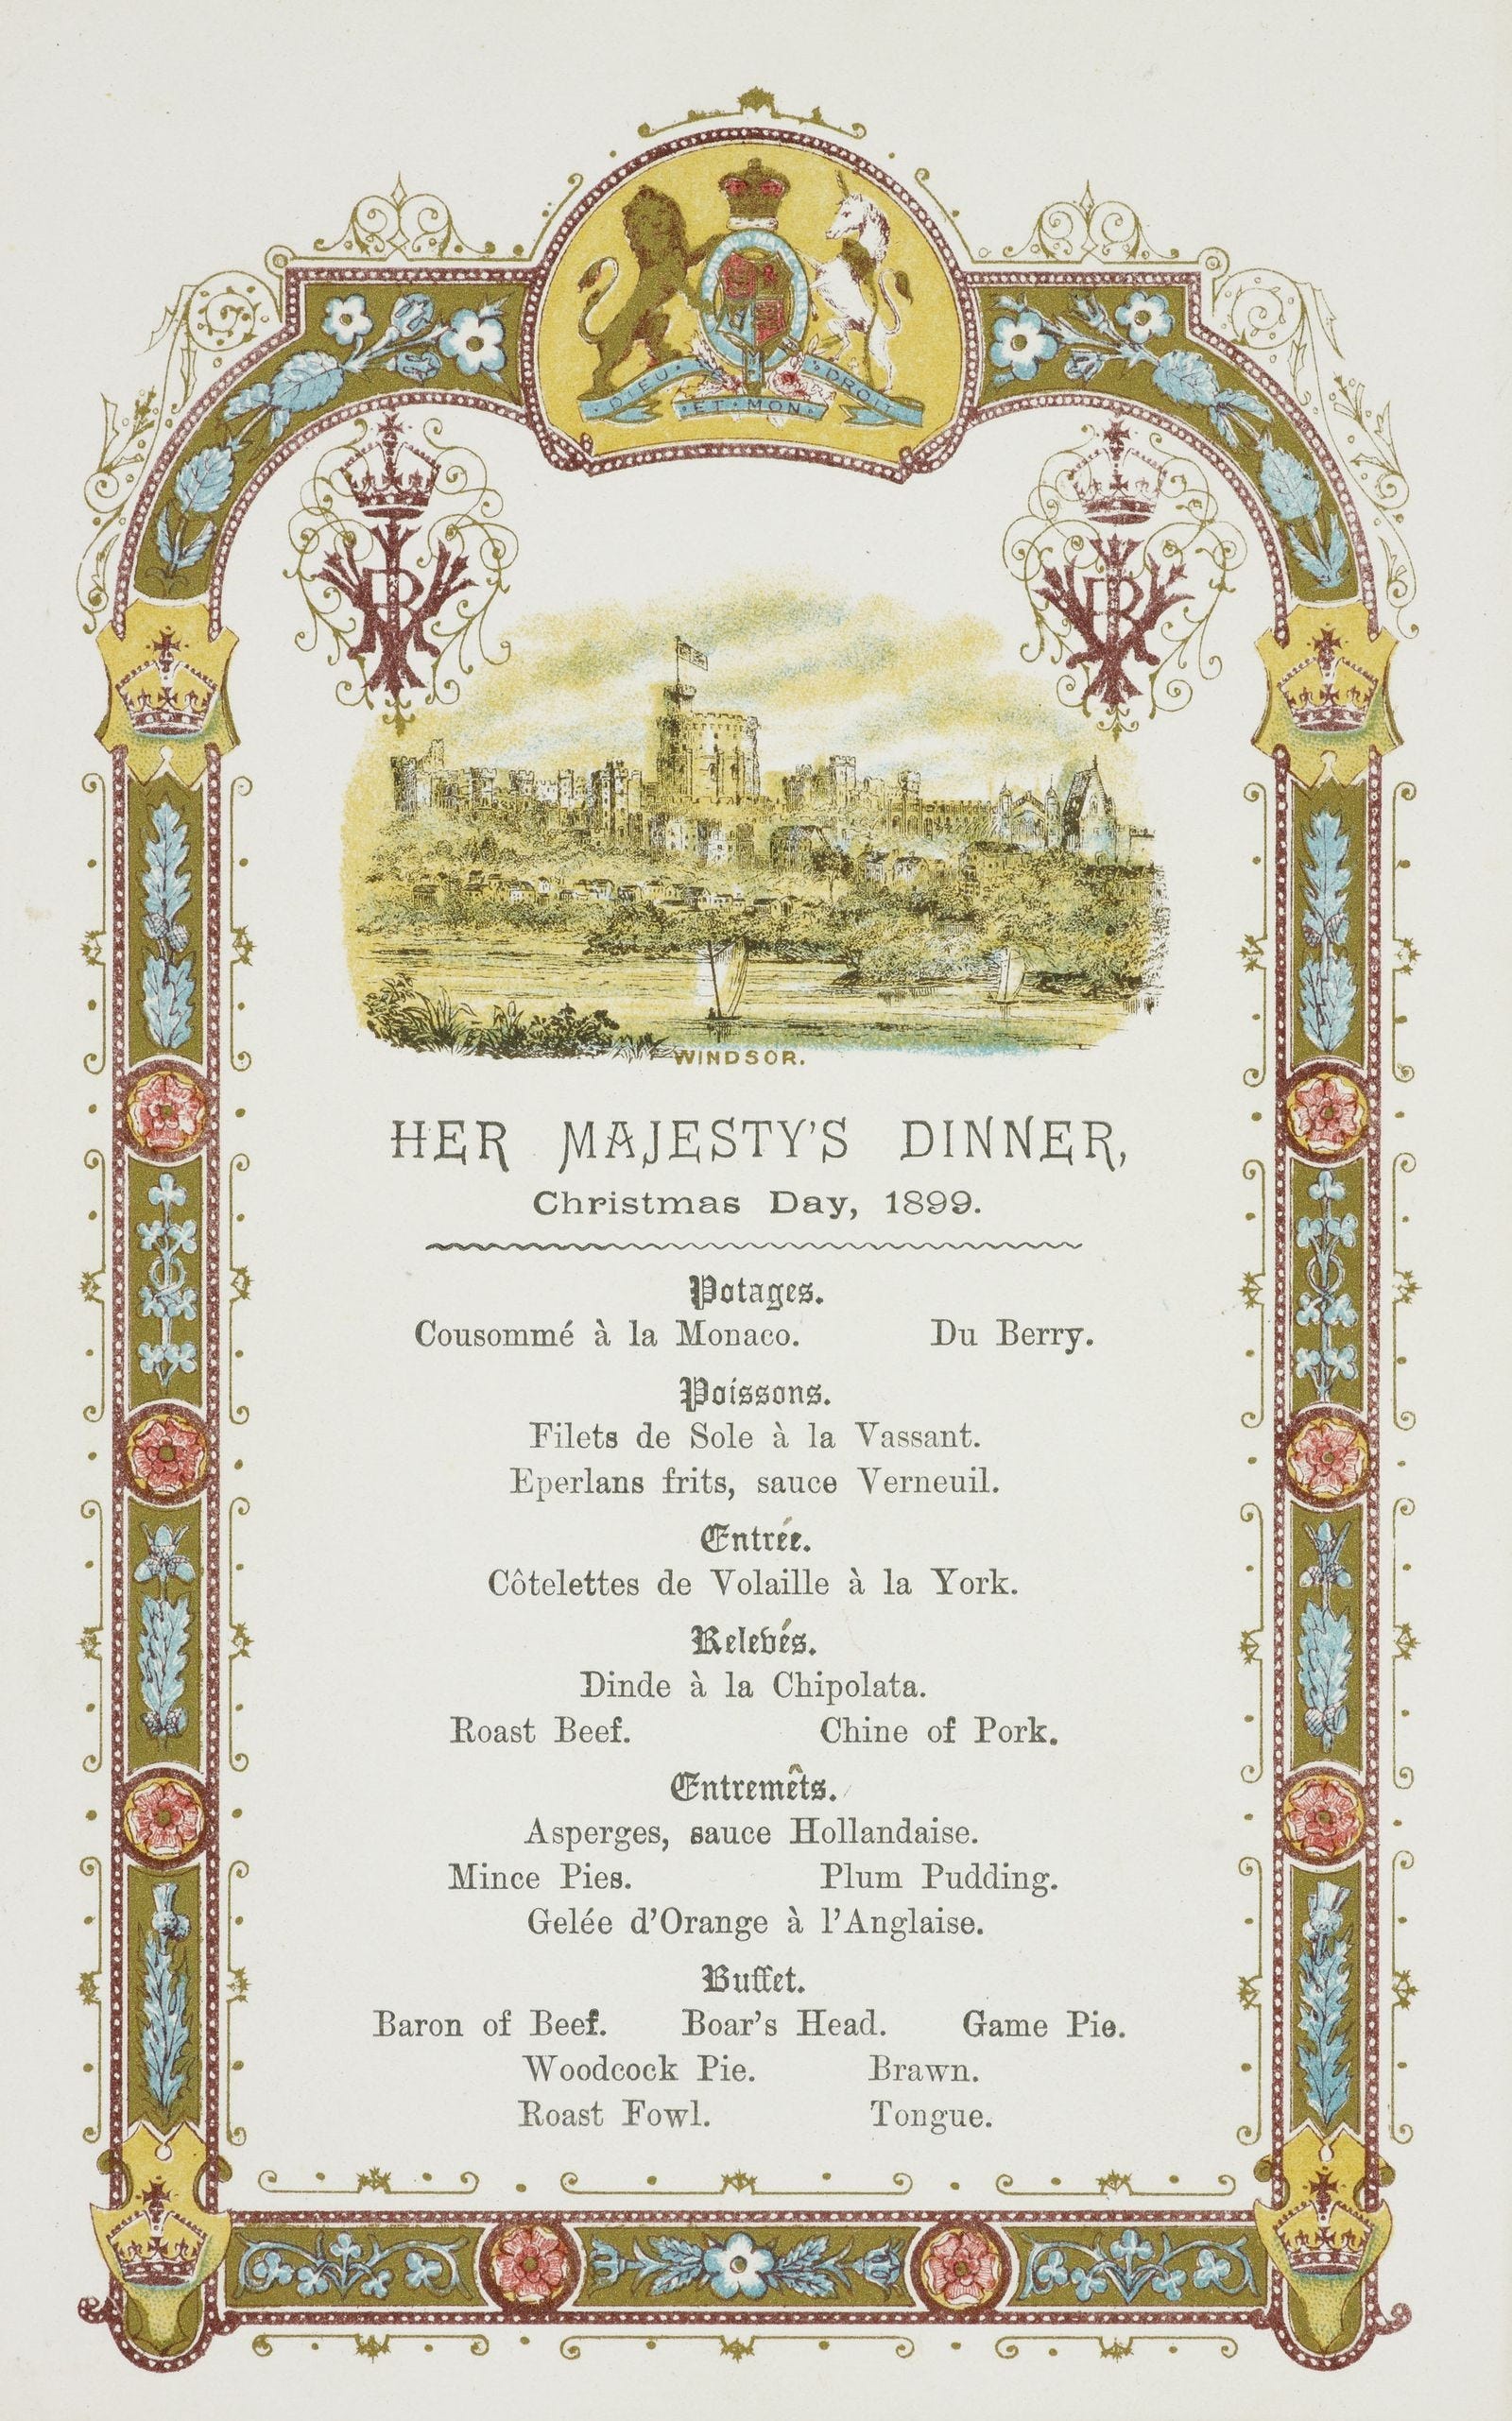 DIEU ET MON DROIT
VR
VR
WINDSOR.
HER MAJESTY'S DINNER,
Christmas Day, 1899.
Potages.
Cousommé à la Monaco. Du Berry.
Poissons.
Filets de Sole à la Vassant.
Eperlans frits, sauce Verneuil.
Entrée.
Côtelettes de Volaille à la York.
Relevés.
Dinde à la Chipolata.
Roast Beef. Chine of Pork.
Entremêts.
Asperges, sauce Hollandaise.
Mince Pies. Plum Pudding.
Gelée d'Orange à l'Anglaise.
Buffet.
Baron of Beef. Boar's Head. Game Pie.
Woodcock Pie. Brawn.
Roast Fowl. Tongue.